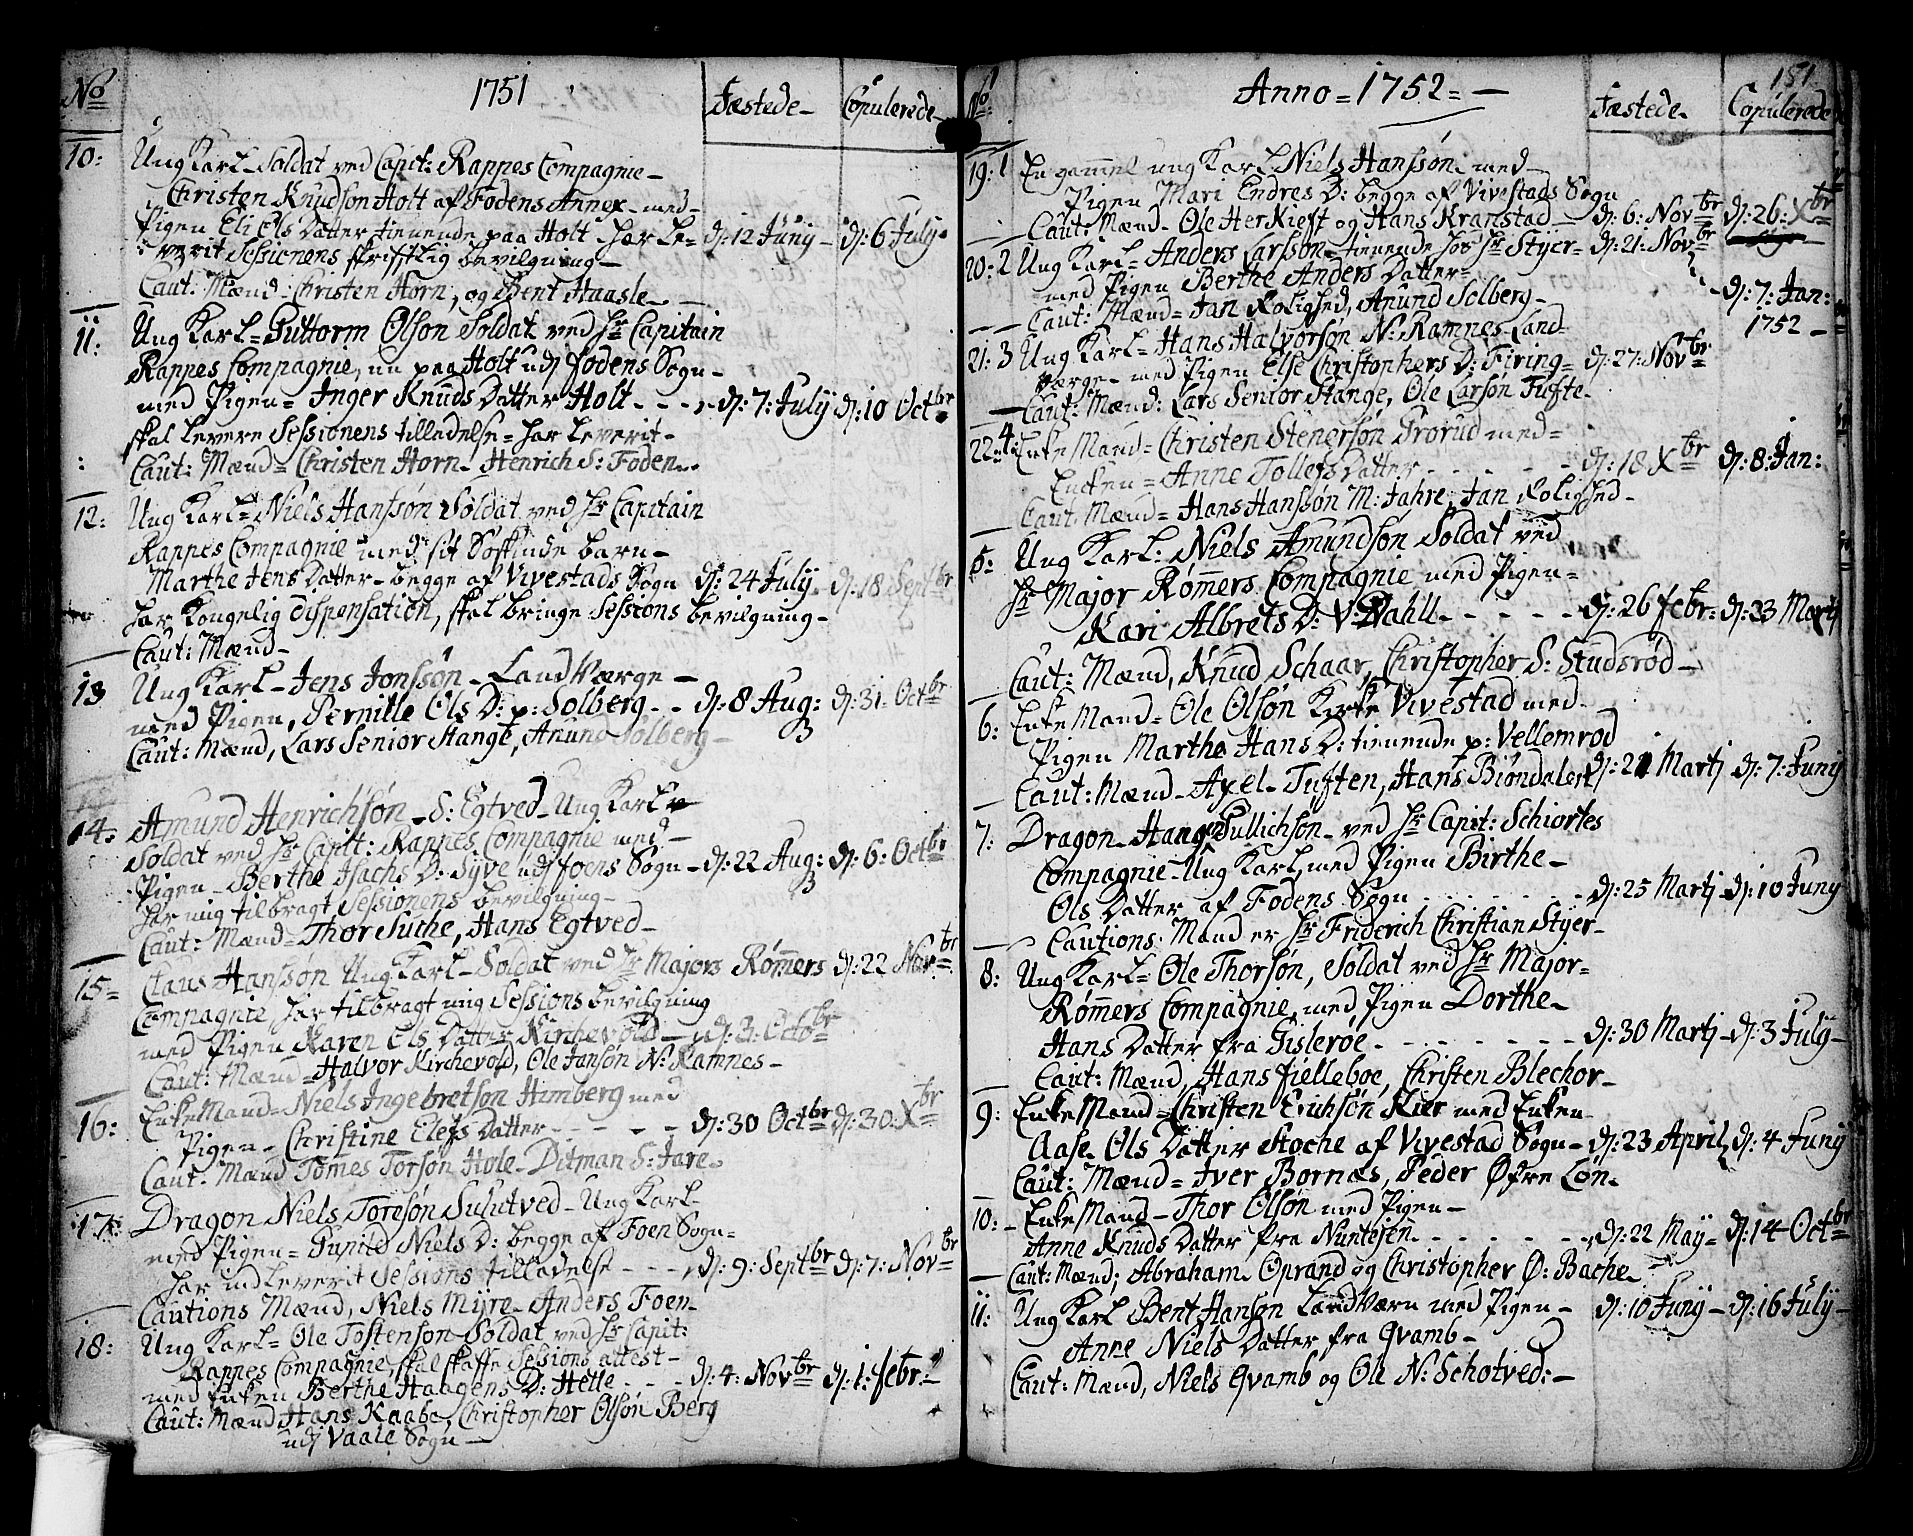 No
1751
Fæstede-
Copulerede-
10:
Ung Karl- Soldat ved Capit: Rappes Compagnie-
Christen Knudson Holt af Fodens Annex- med-
Pigen Eli Els Datter tienende paa Holt- har le- d: 12 Juny- d: 6 July-
verit Sessionens skrifftlig bevilgning-
Caut: Mænd: Christen Horn, og Bent Haasle-
11:
Ung Karl= Guttorm Olson Soldat ved Hr Capitain
Rappes Compagnie, nu paa Holt udj Fodens Sogn-
med Pigen= Inger Knuds Datter Holt - - - d: 7: July d: 10 Octbr
skal levere Sessionens tilladelse= har leverit-
Caut: Mænd= Christen Horn- Henrich S: Foden-
12:
Ung Karl= Niels Hansøn Soldat ved Hr Capitain
Rappes Compagnie med sit Søskinde barn-
Marthe Jens Datter- begge af Vivestads Sogn d: 24 July- d: 18 Septbr
har Kongelig dispensation, skal bringe Sessions bevilgning-
Caut: Mænd-
13
Ung Karl- Jens Jonssøn- Land Værge-
med Pigen, Pernille Ols D: p: Solberg- - d: 8 Aug: d: 31- Octbr
Caut: Mænd, Lars Senior Stange, Anund Solberg-
14.
Amund Henrichsøn- S: Egtved- Ung Karl
Soldat ved Hr Capitt: Rappes Compagnie med-
Pigen- Berthe Isachs D: Syve udj Foens Sogn- d: 22 Aug: d: 6: Octbr
har mig tilbragt Sessionens bevilgning-
Caut: Mænd= Thor Suche, Hans Egtved-
15=
Claus Hanssøn Ung Karl- Soldat ved Hr Majors Rømers d: 22 Novbr
Compagnie, har tilbragt mig Sessions bevilgning
med Pigen Karen Els Datter Kirchevold- d: 3: Octobr
Caut: Mænd= Halvor Kirchevold, Ole Janson N: Ramnes-
16:
Enke Mand= Niels Ingebretson Himberg med
Pigen- Christine Elefs Datter - - - - d: 30 Octbr d: 30: Xbr
Caut: Mænd Tomes Torson Hole- Ditman S: Jare-
17:
Dragon Niels Toresøn Sulutved- Ung Karl-
med Pigen= Gunild Niels D: begge af Foen Sogn=
har indleverit Sessions tilladelse - - - d: 9: Septbr d: 7: Novbr
Cautions Mænd, Niels Myre- Anders Foen-
18:
Ung Karl= Ole Tostenson Soldat ved Hr Capit:
Rappes Compagnie, skal skaffe Sessions attest-
med Enken Berthe Haagens D: Helle - - - d: 4: Novbr d: 1: febr:
Caut: Mænd Hans Kaabe, Christopher Olsøn Berg
udj Vaale Sogn-
No
Anno = 1752 = -
Fæstede-
151
Copulerede
19: 1
En gammel ung Karl Niels Hanssøn- med-
Pigen Mari Endres D: begge af Vivestads Sogn
Caut: Mænd- Ole Herkieft og Hans Kranstad- d: 6: Novbr d: 26: Xbr
20: 2
Ung Karl= Anders Larssøn- tienende hos Hr Styer- d: 21: Novbr
med Pigen Berthe Anders Datter= d: 7: Jan:
Caut: Mænd= Jan Rolighed, Anund Solberg- 1752-
21: 3
Ung Karl= Hans Halvorsøn N: Ramnes- Land
værge- med Pigen Else Christophers D: Firing= d: 27: Novbr
Caut: Mænd: Lars Senior Stange, Ole Larson Tufte-
22: 4:
Enke Mand= Christen Stenersøn Grorud med=
Enken= Anne Tollefs Datter - - - - - d: 18 Xbr d: 8: Jan:
Caut: Mænd= Hans Hanssøn M: Jahre, Jan Rolighed-
5:
Ung Karl: Niels Amundsøn Soldat ved
Hr Major Rømers Compagnie med Pigen=
Kari Albrets D: V: Dahll - - - - - d: 26 febr: d: 23 Martj
Caut: Mænd, Knud Schaar, Christopher S: Studsrød-
6:
Enke Mand= Ole Olsøn Kirke Vivestad med-
Pigen Marthe Hans D: tienende p: Vellemrod
Caut: Mænd- Axel- Tuften, Hans Biøndalen d: 21 Martj d: 7: Juny
7:
Dragon- Hans Gullichsøn- ved Hr Capit: Schiortes
Compagnie- Ung Karl, med Pigen Birthe-
Ols Datter af Fodens Sogn - - - - - d: 25 Martj d: 10 Juny
Cautions Mand er Hr Friderich Christian Styer-
8:
Ung Karl= Ole Thorsøn, Soldat ved Hr Major=
Rømers Compagnie, med Pigen Dorthe-
Hans Datter fra Gislerøe - - - - - d: 30 Martj- d: 3 July-
Caut: Mænd, Hans Fielleboe, Christen Blechor-
9:
Enke Mand= Christen Erichsøn Kier med Enken
Aase Ols Datter Stoche af Vivestad Sogn- d: 23 April, d: 4 Juny
Caut: Mænd= Iver Bornæs, Peder Øfre Løn-
10:
- Enke Mand- Thor Olsøn med Pigen-
Anne Knuds Datter fra Nuntesen - - - - - d: 22 May= d: 14 Octbr
Caut: Mænd; Abraham- Oprand og Christopher Ø: Bache-
11:
Ung Karl Bent Hanson Landværn med Pigen- d: 10 Juny- d: 16 July-
Anne Niels Datter fra Qvamb-
Caut: Mænd, Niels Qvamb og Ole N: Schotved:-